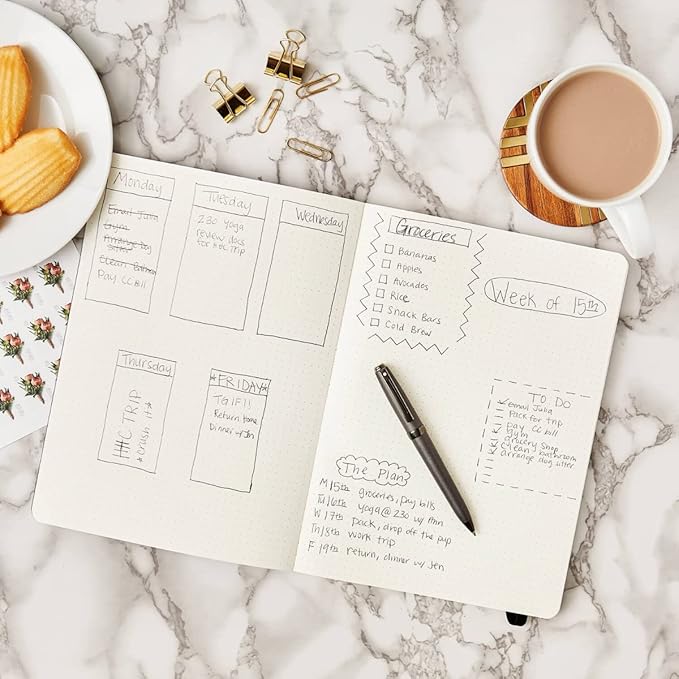 Monday
Email Julia
Gym
Arrange dog sitter
Clean Bathroom
Pay CC Bill
Tuesday
230 yoga
review docs
for H&C trip
Wednesday
Thursday
H&C TRIP
*crush it*
*FRIDAY*
TGIF!!
Return home
Dinner w/ Jen
Groceries
Bananas
Apples
Avocados
Rice
Snack Bars
Cold Brew
Week of 15th
TO DO
Email Julia
Pack for trip
Pay CC Bill
Gym
grocery shop
clean bathroom
arrange dog sitter
The Plan
M/15th groceries, pay bills
Tu/16th yoga @ 230 w/
W/17th pack, drop off the pup
Th/18th work trip
F/19th return, dinner w/ Jen